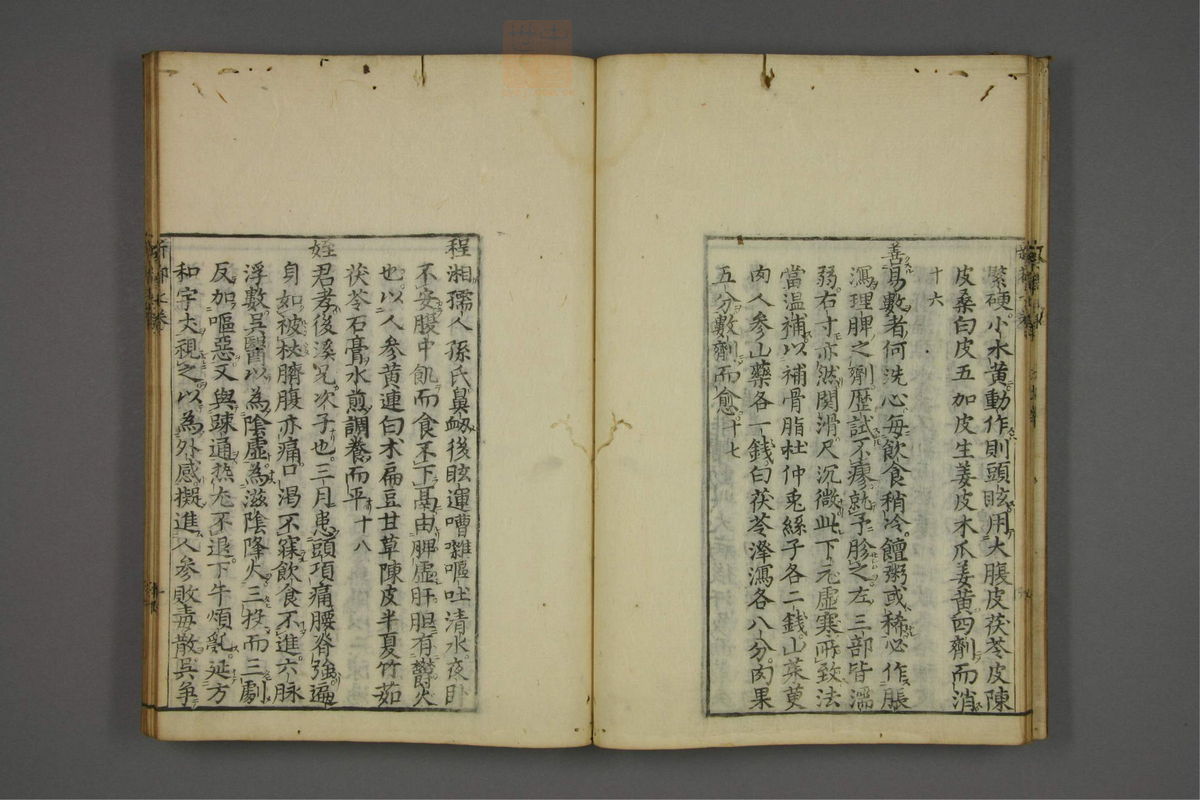 緊硬小水黄動作則頭眩用大腹皮茯苓皮陳
皮桑白皮五加皮生姜皮木瓜姜黄四劑而消
十六
善易數者何洗心每飲食稍冷饘粥或稀必作脹
瀉理脾之劑歴試不瘳就予胗之左三部皆濡
弱右寸亦然関滑尺沉微此下元虚寒所致法
當温補以補骨脂杜仲兎絲子各二銭山茱萸
肉人參山藥各一銭白茯苓澤瀉各八分肉果
五分數劑而愈十七
程湘孺人孫氏鼻衂後眩運嘈雜嘔吐清水夜卧
不安腹中飢而食不下膈由脾虚肝胆有鬱火
也以人參黄連白朮扁豆甘草陳皮半夏竹茹
茯苓石膏水煎調養而平十八
姪君孝後溪兄次子也三月患頭項痛腰脊強遍
身如被杖臍腹亦痛口渇不寐飲食不進六脉
浮數呉醫以為陰虚為滋陰降火三投而三劇
反加嘔惡又與疎通熱尤不退下午煩亂延方
和宇大視之以為外感擬進人參敗毒散呉争